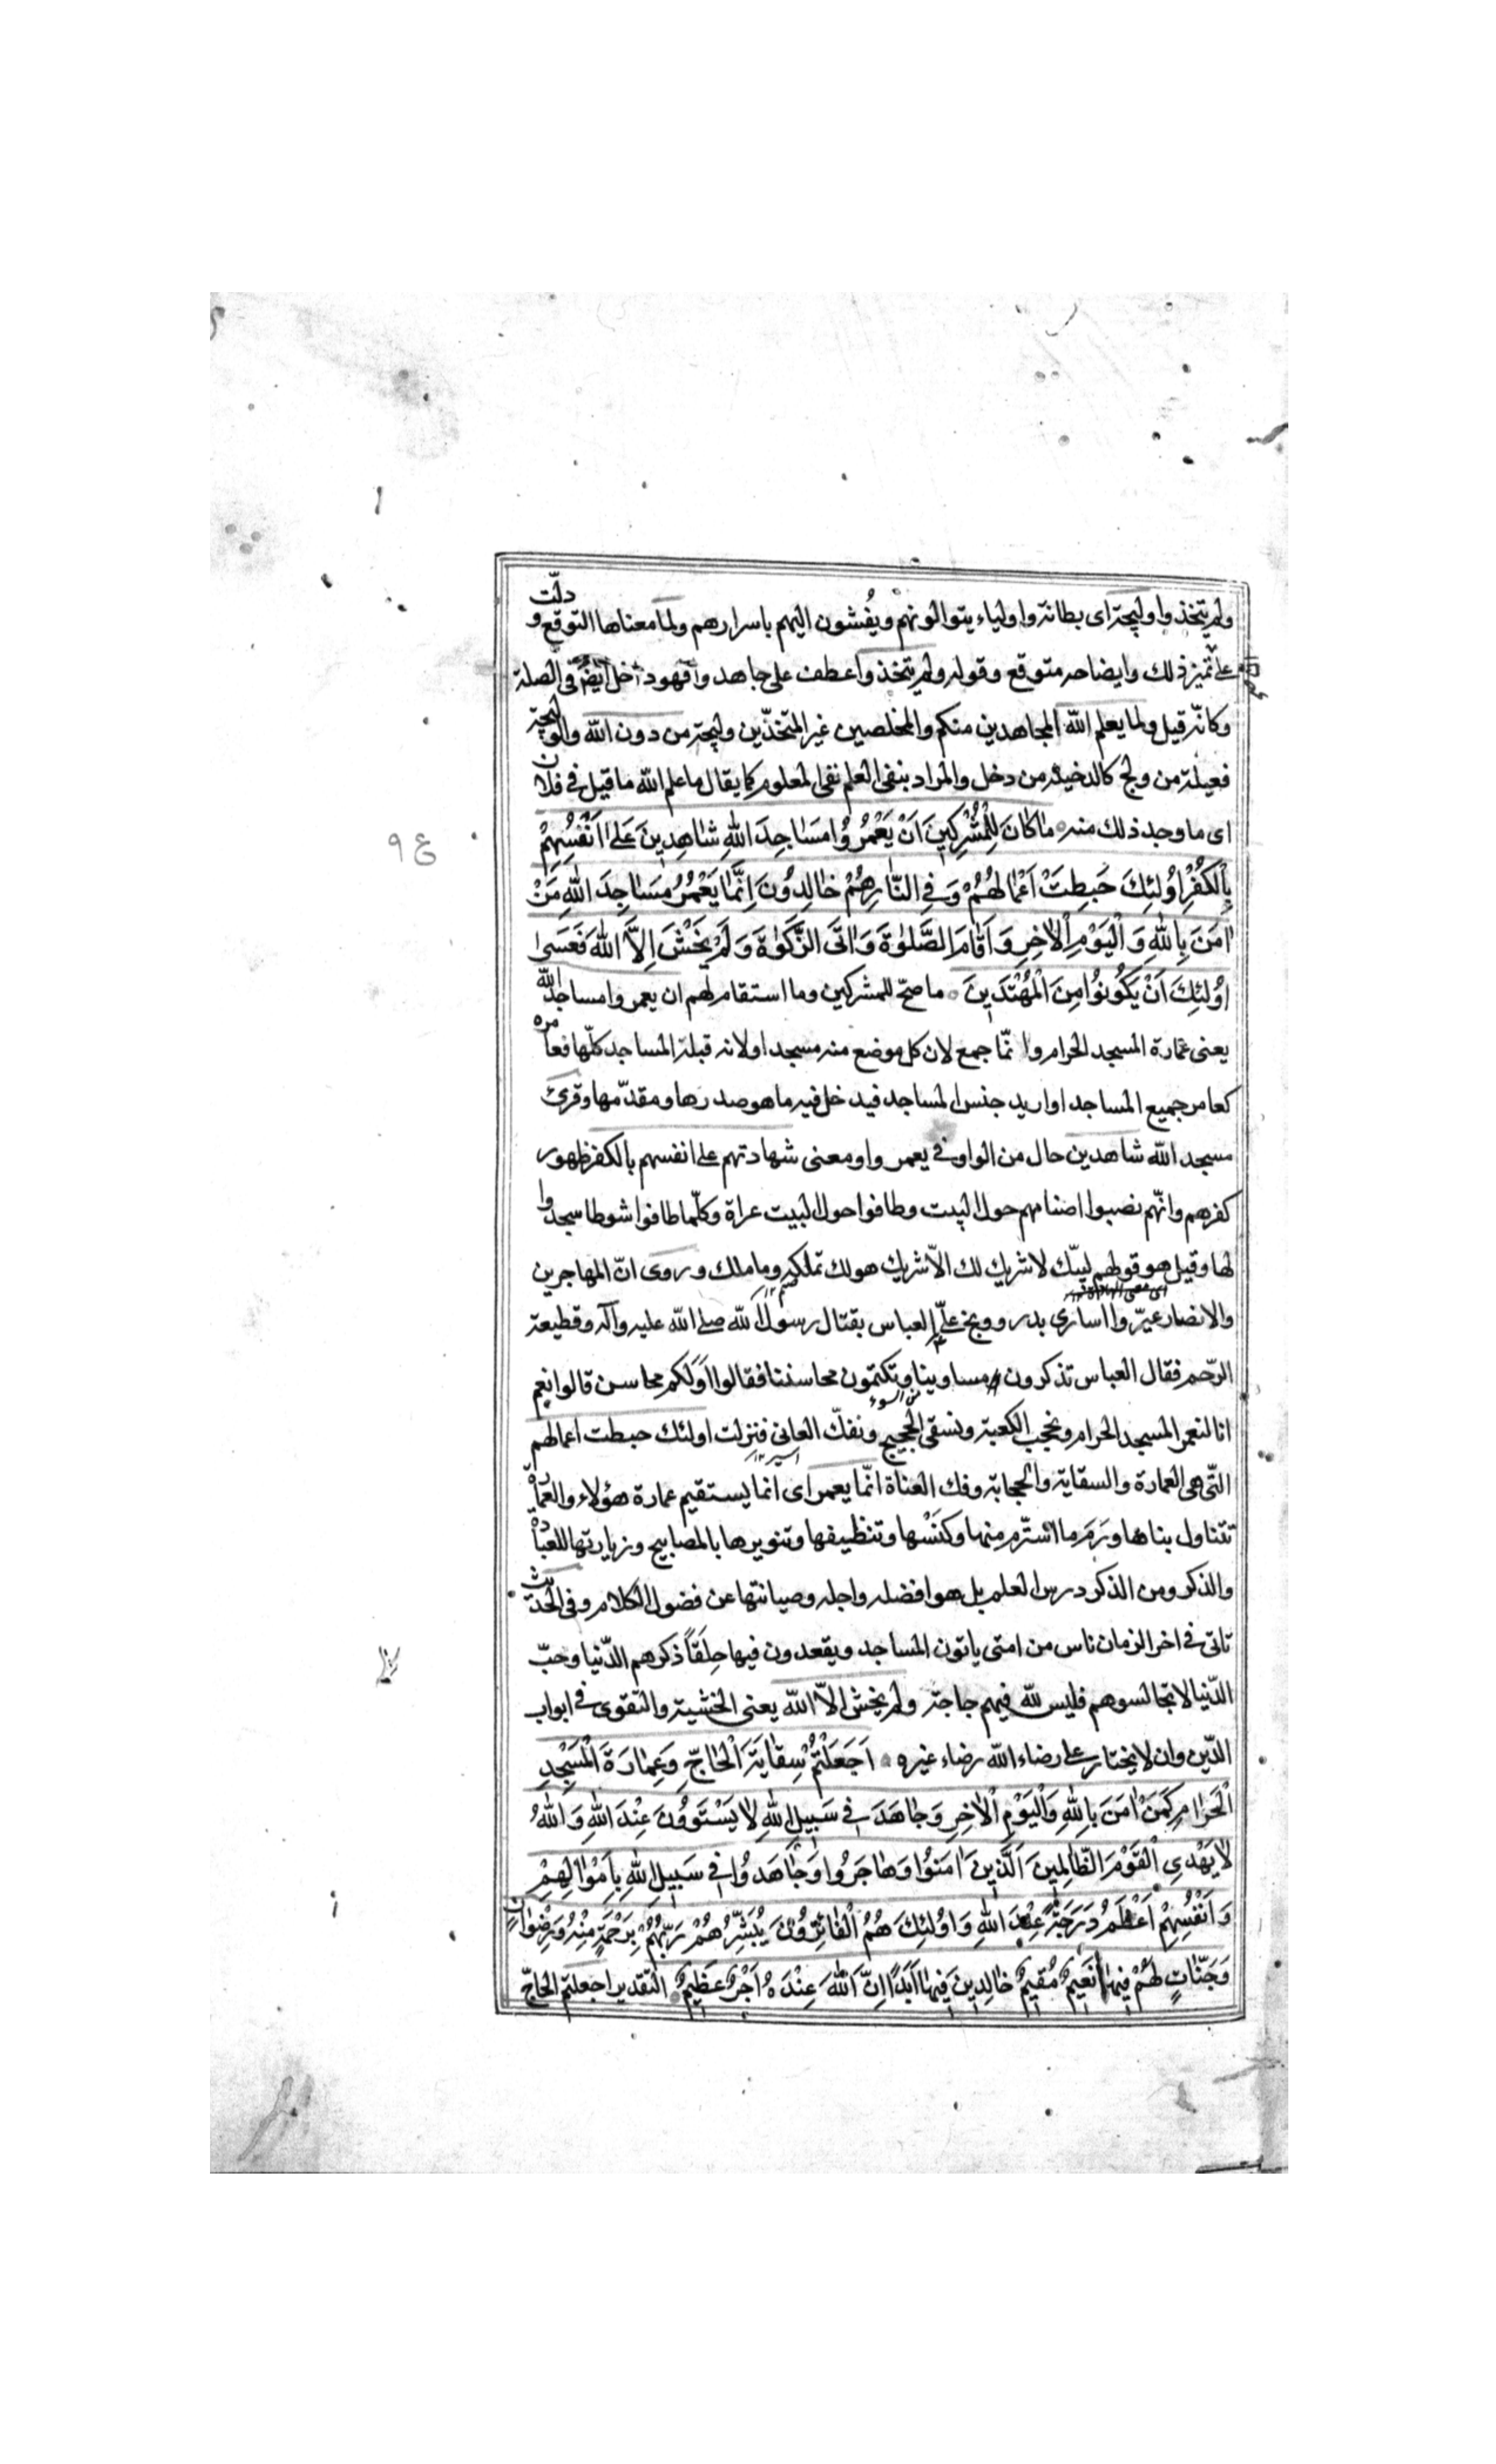 ولم يتخذوا وليجة اى بطانة واولياء يتوالونهم ويُفشون اليهم باسرارهم ولما معناها التوقع و دلّت
على تميز ذلك وايضاحه متوقع وقوله ولم يتخذوا عطف على جاهدوا فهو داخل ايضا فى الصلة
وكانّه قيل ولما يعلم الله المجاهدين منكم والمخلصين غير المتخذّين وليجة من دون الله والوليجة
فعيلة من ولج كالدخيلة من دخل والمراد بنفى العلم نفى المعلوم كما يقال ما علم الله ما قيل فى فلان
اى ما وجد ذلك منه مَا كَانَ لِلْمُشْرِكِينَ اَنْ يَعْمُرُوُا مَسَاجِدَ اللهِ شَاهِدِينَ عَلى اَنْفُسِهِمْ
بِالْكُفْرِ اوُلئِكَ حَبِطَتْ اَعْمَالُهُمْ وَفِى النَّارِ هُمْ خَالِدُونَ اِنَّمَا يَعْمُرُ مَسَاجِدَ اللهِ مَنْ
امَنَ بِاللهِ وَالْيَوْمِ الْاخِرِ وَاَقَامَ الصَّلوةَ وَاتَى الزَّكوةَ وَلَمْ يَخْشَ اِلاَّ اللهَ فَعَسَى
اوُلئِكَ اَنْ يَكُونُوُا مِنَ الْمُهْتَدِينَ ما صحّ للمشركين وما استقام لهم ان يعمروا مساجد الله
يعنى عمارة المسجد الحرام وانّما جمع لان كل موضع منه مسجد او لانه قبلة المساجد كلّها فعامره
كعامر جميع المساجد او اريد جنس المساجد فيدخل فيه ما هو صدرها ومقدّمها وقرئ
مسجد الله شاهدين حال من الواو فى يعمروا ومعنى شهادتهم على انفسهم بالكفر ظهور
كفرهم وانّهم نصبوا اصنامهم حول البيت وطافوا حول البيت عراة وكلّما طافوا شوطا سجدوا
لها وقيل هو قولهم لبيّك لا شريك لك الاّ شريك هو لك تملكه وما ملك وروى انّ المهاجرين
والانصار عيّروا اسارى بدر ووبخ علىّ العباس بقتال رسول الله صلى الله عليه وآله وقطيعة
الرّحم فقال العباس تذكرون مساوينا وتكتمون محاسننا فقالوا اَوَلكم محاسن قالوا نعم
انا لنعمر المسجد الحرام ونحجب الكعبة ونسقى الحجيج ونفكّ العانى فنزلت اولئك حبطت اعمالهم
التّى هى العمارة والسقاية والحجابة وفك العناة انّما يعمر اى انما يستقيم عمارة هؤلاء والعمارة
تتناول بناها ورَمّ ما استرّم منها وكَنْسها وتنظيفها وتنويرها بالمصابيح وزيارتها للعبادة
والذكر ومن الذكر درس العلم بل هو افضله واجله وصيانتها عن فضول الكلام وفى الحديث
تاتى فى اخر الزمان ناس من امتى ياتون المساجد ويقعدون فيها حِلَقاً ذكرهم الدّنيا وحبّ
الدّنيا لا تجالسوهم فليس لله فيهم حاجة ولم يخش الاّ الله يعنى الخشية والتقوى فى ابواب
الدّين وان لا يختار على رضاء الله رضاء غيره اَجَعَلْتُمْ سِقَايَةَ الْحَاجِّ وَعِمَارَةَ الْمَسْجِدِ
الْحَرَامِ كَمَنْ امَنَ بِاللهِ وَالْيَوْمِ الْاخِرِ وَجَاهَدَ فى سَبِيلِ اللهِ لَا يَسْتَوُونَ عِنْدَ اللهِ وَاللهُ
لَا يَهْدِى الْقَوْمَ الظَّالِمِينَ اَلَّذِينَ امَنُوا وَهَاجَرُوا وَجَاهَدُوا فى سَبِيلِ اللهِ بِاَمْوَالِهِمْ
وَاَنْفُسِهِمْ اَعْظَمُ دَرَجَةً عِنْدَ اللهِ وَاوُلئِكَ هُمُ الْفَائِزُونَ يُبَشِّرُهُمْ رَبُّهُمْ بِرَحْمَةٍ مِنْهُ وَرِضْوَانٍ
وَجَنَّاتٍ لَهُمْ فِيهَا نَعِيمٌ مُقِيمٌ خَالِدِينَ فِيهَا اَبَدًا اِنَّ اللهَ عِنْدَهُ اَجْرٌ عَظِيمٌ التقدير اجعلتم الحاجّ